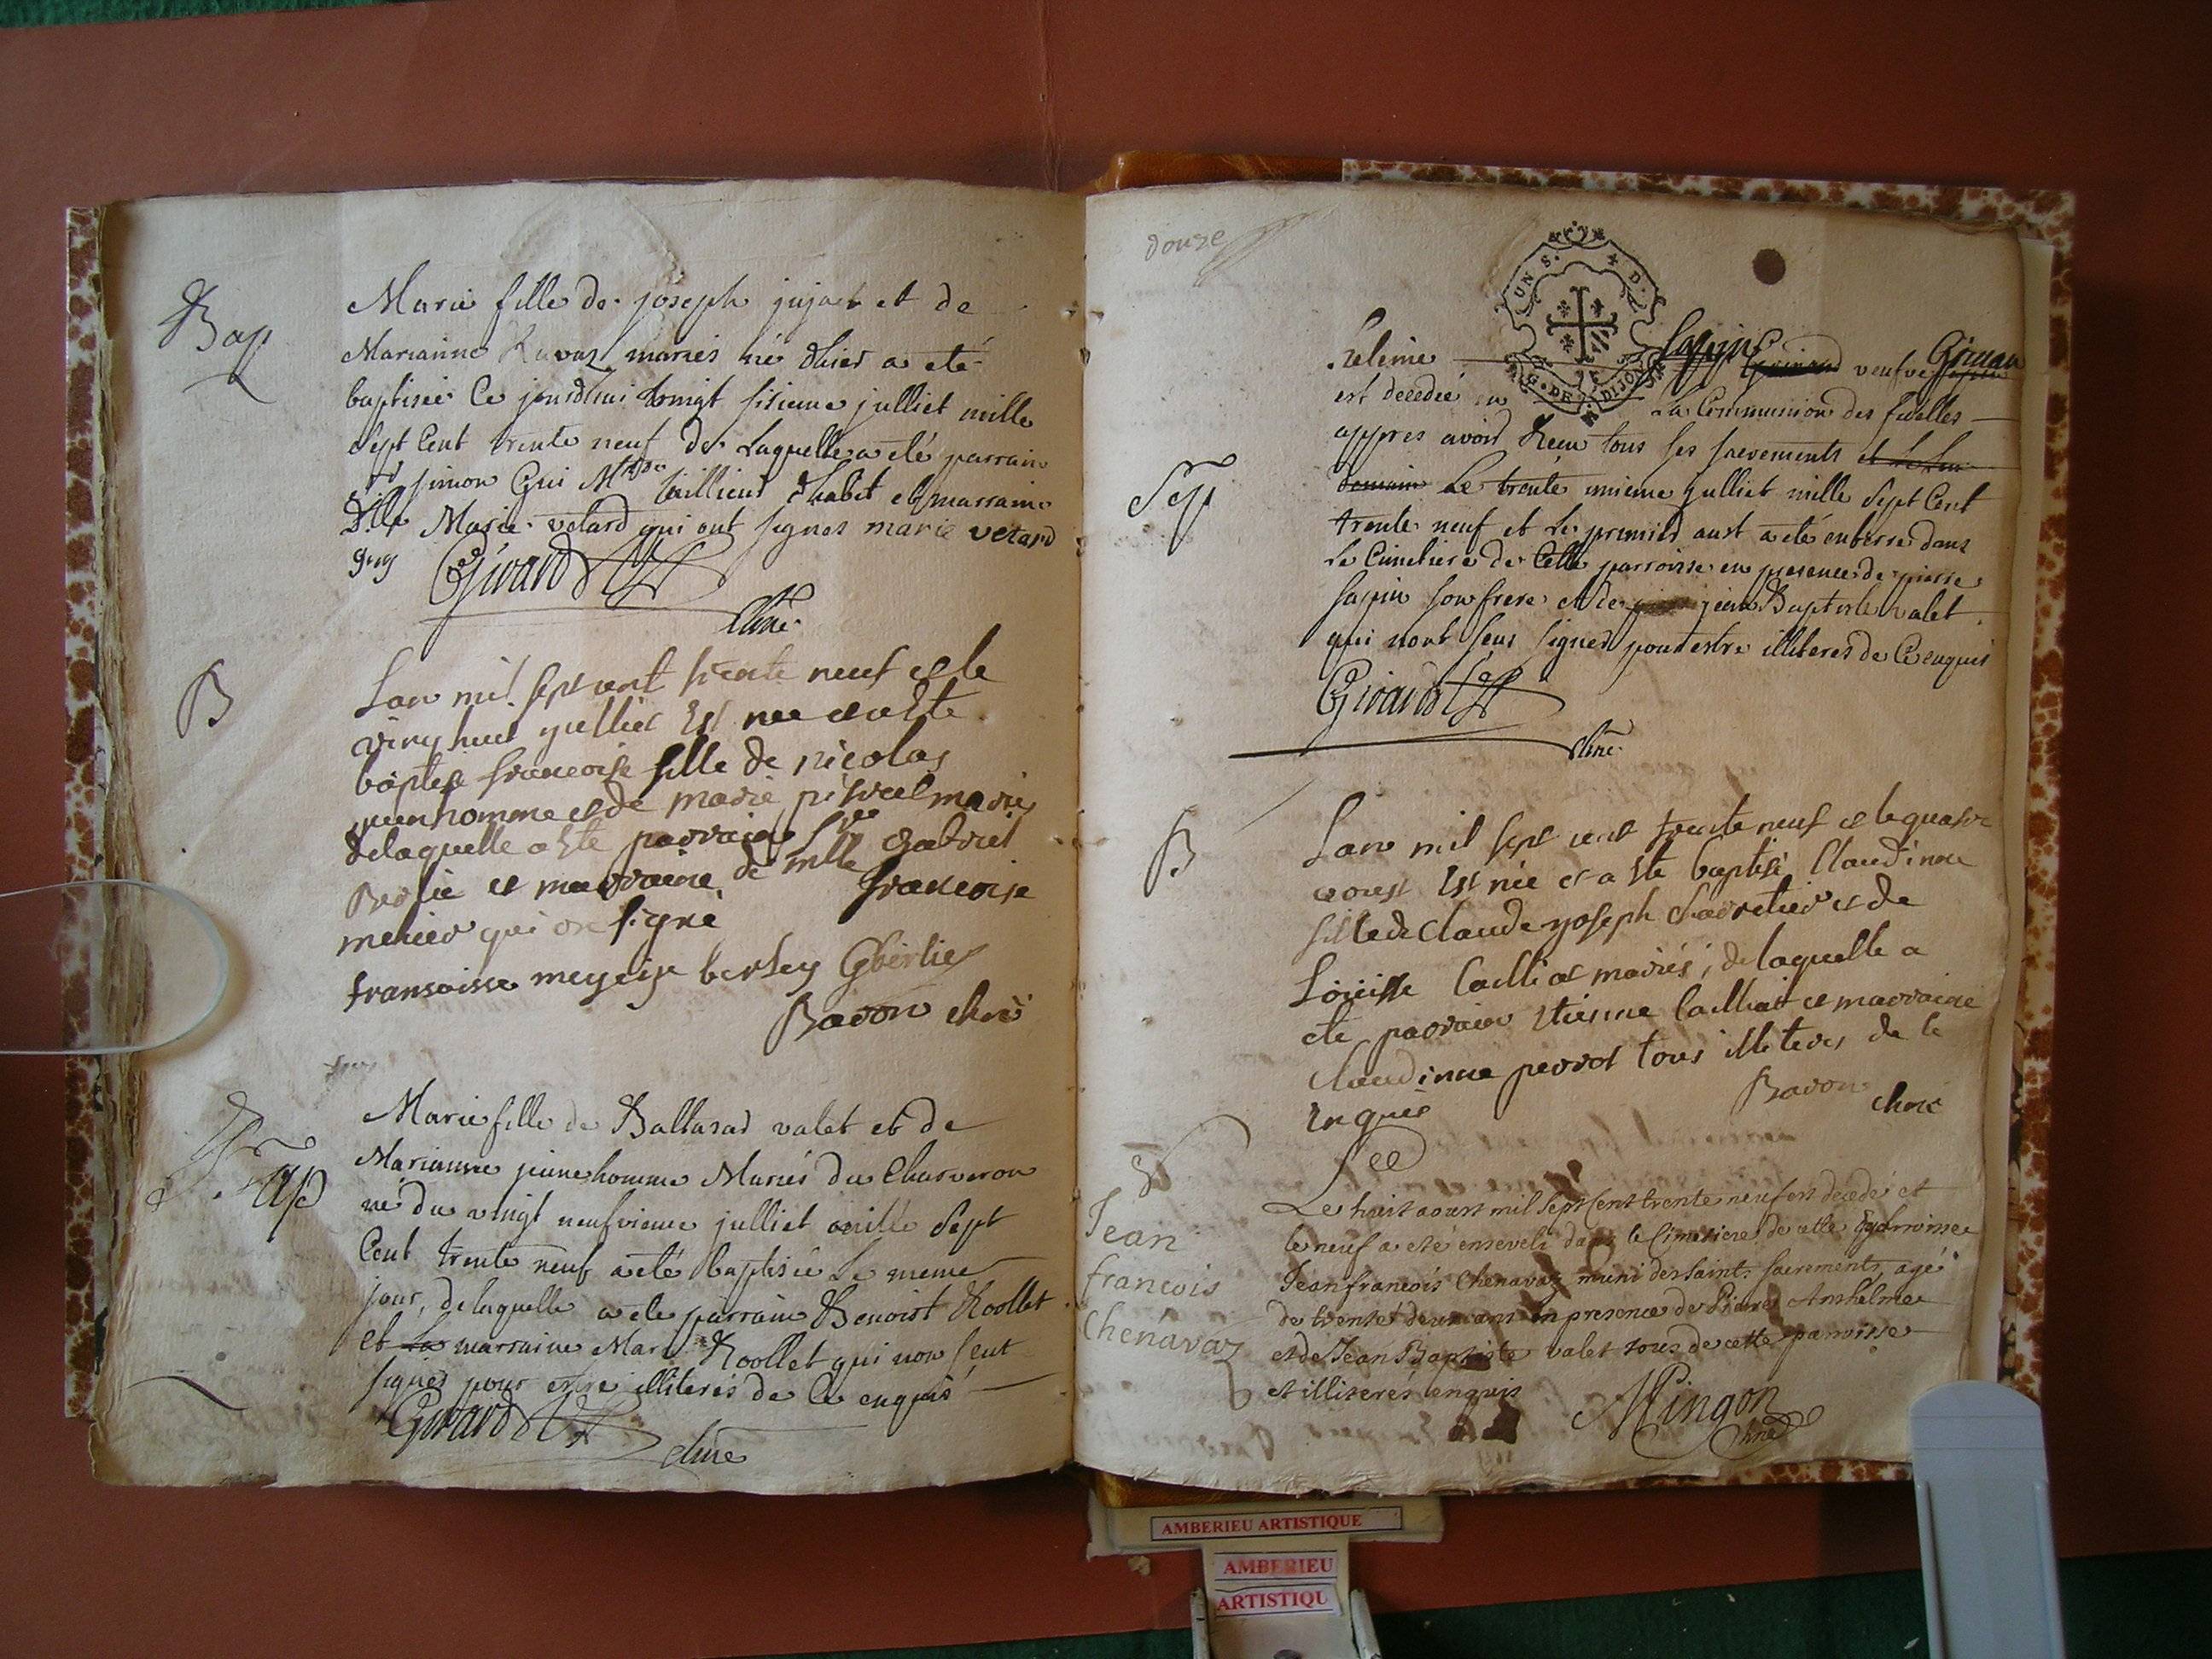 Bap
Marie fille de joseph jujat et de
Marianne Ravaz mariés né dhier a eté
baptisée Ce jourdhui vingt sisieme julliet mille
sept Cent trente neuf de Laquelle a été parrain
sr simon Gui Mtre tailleur dhabit et marraine
Dlle Marie vetard qui ont signes marie vetard
guy Girard
Cure
B
Lan mil sept cent trente neuf et le
ving huit yulliet Est nee et a Este
baptise francoise fille de nicolas
jeunhomme et de marie mariés
delaquelle a Este parrain Sre gabriel
Berlie et marraine de mlle francoise
meinier qui on signé
fransoisse berley Gberlie
Baron chre
Marie fille de Baltasard valet et de
Marianne jeune homme Mariés du Chasveron
né du vingt neufvieme julliet mille Sept
Cent trente neuf a eté baptisée Le meme
jour, de laquelle a ete parrain Benoist Roollet
et la marraine Marie Roollet qui non seut
signer pour estre illiterés de Ce enquis
Girard
Cure
douze
UN S. D.
G. DE DIJON
helene Sapin veufve Girard
est decedée en La Communion des fidelles
Sep
appres avoir Receu tous ses sacrements et le len
demain Le trente unieme yulliet mille Sept Cent
trente neuf et Le premier aust a eté enterré dans
Le Cimetiere de Cette parroisse en presence de pierre
sapin son frere et de jean Baptiste valet
qui nont seus signer pour estre illiteres de Ce enquis
Girard
Cure
B
Lan mil sept cent trente neuf et le quatre
aoust Est née et a Ete baptisé Claudinne
fille de Claude yoseph Charretier et de
Louisse Calliat mariés, de laquelle a
ete parrain Etienne Calliat et marraine
Claudinne perrot tous illiteres de le
Enquis
Baron chre
Jean
francois
Chenavaz
Le huit aoust mil sept Cent trente neuf est decedé et
le neuf a eté enseveli dans le Cimetiere de cette parroisse
Jean francois Chenavaz muni des saints sacrements, agé
de trente deux ans en presence de Pierre Anthelme
et de Jean Baptiste valet tous de cette parroisse
et illiterés enquis
Mingon